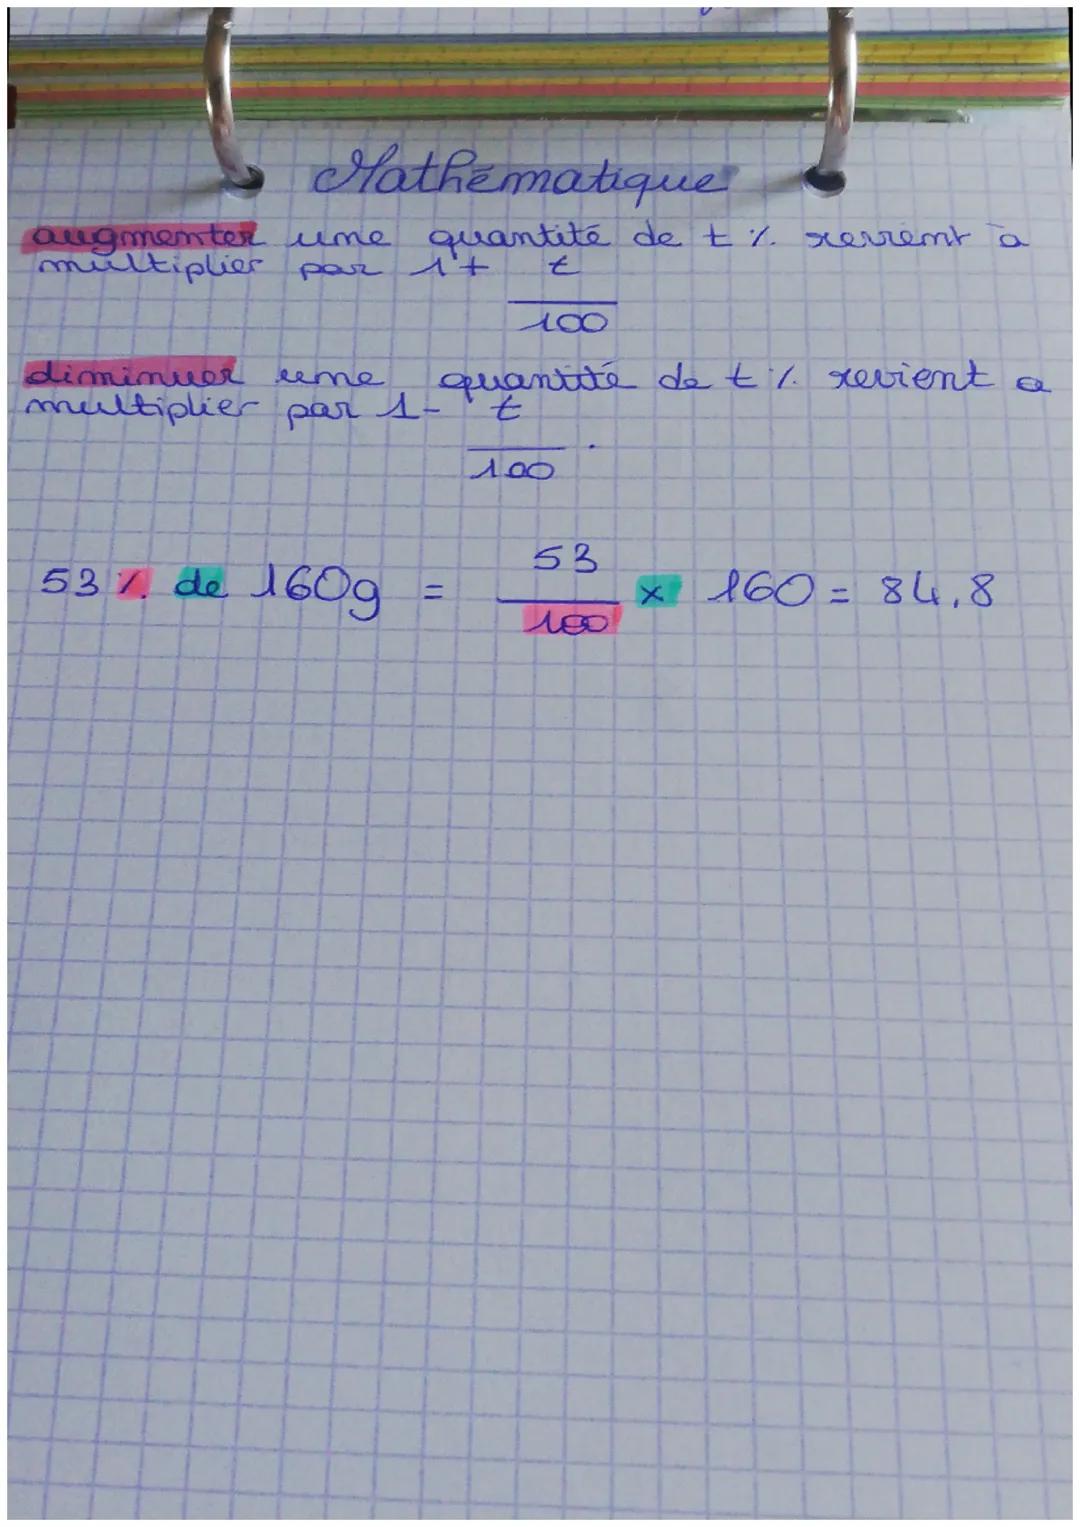 Mathématique
augmenter une quantité de t % revient à
multiplier par 1+ t
100
diminuer une quantité de t % revient a
multiplier par 1- t
100 .
53 % de 160g = 53
100 × 160 = 84,8